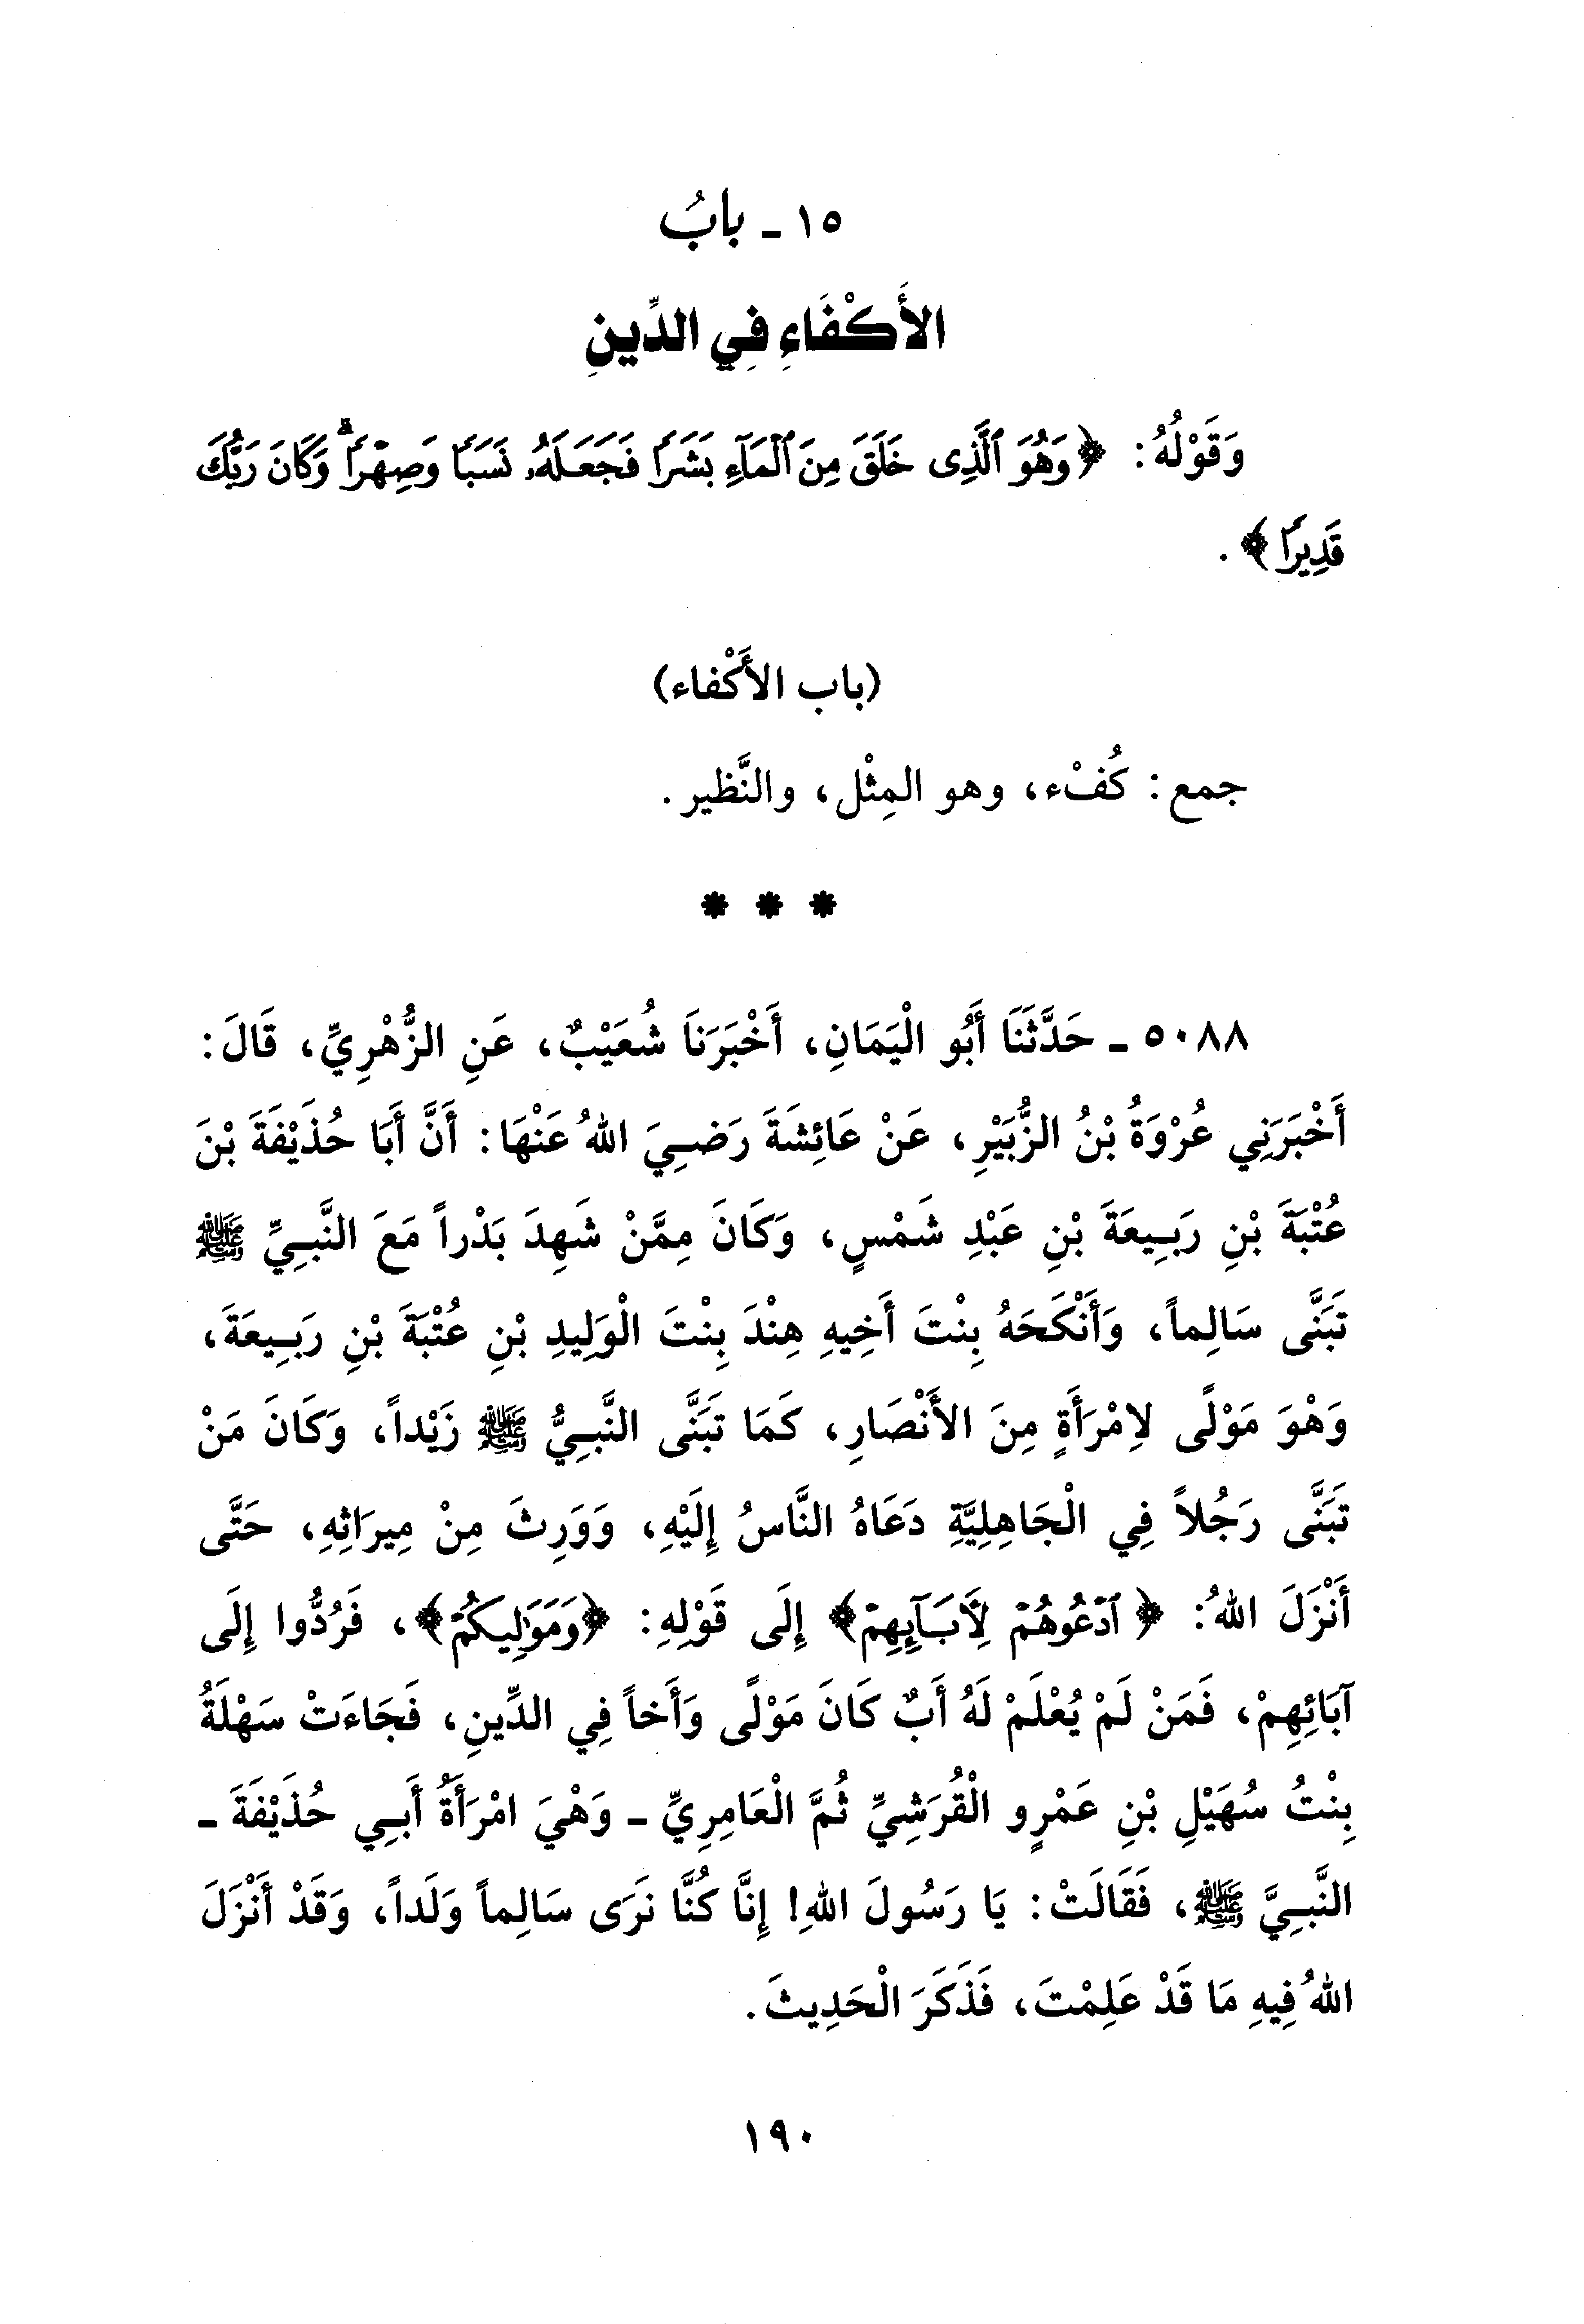 ١٥ ـ بابُ
الأَكْفَاءِ فِي الدِّينِ
وَقَوْلُهُ: ﴿وَهُوَ ٱلَّذِى خَلَقَ مِنَ ٱلْمَآءِ بَشَرًا فَجَعَلَهُۥ نَسَبًا وَصِهْرًا ۗ وَكَانَ رَبُّكَ
قَدِيرًا﴾.
(باب الأَكْفاء)
جمع: كُفْء، وهو المِثْل، والنَّظير.
* * *
٥٠٨٨ ـ حَدَّثَنَا أَبُو الْيَمَانِ، أَخْبَرَنَا شُعَيْبٌ، عَنِ الزُّهْرِيِّ، قَالَ:
أَخْبَرَنِي عُرْوَةُ بْنُ الزُّبَيْرِ، عَنْ عَائِشَةَ رَضِيَ اللهُ عَنْهَا: أَنَّ أَبَا حُذَيْفَةَ بْنَ
عُتْبَةَ بْنِ رَبِيعَةَ بْنِ عَبْدِ شَمْسٍ، وَكَانَ مِمَّنْ شَهِدَ بَدْراً مَعَ النَّبِيِّ ﷺ
تَبَنَّى سَالِماً، وَأَنْكَحَهُ بِنْتَ أَخِيهِ هِنْدَ بِنْتَ الْوَلِيدِ بْنِ عُتْبَةَ بْنِ رَبِيعَةَ،
وَهْوَ مَوْلًى لِامْرَأَةٍ مِنَ الأَنْصَارِ، كَمَا تَبَنَّى النَّبِيُّ ﷺ زَيْداً، وَكَانَ مَنْ
تَبَنَّى رَجُلاً فِي الْجَاهِلِيَّةِ دَعَاهُ النَّاسُ إِلَيْهِ، وَوَرِثَ مِنْ مِيرَاثِهِ، حَتَّى
أَنْزَلَ اللهُ: ﴿ٱدْعُوهُمْ لِأَبَآئِهِمْ﴾ إِلَى قَوْلِهِ: ﴿وَمَوَٰلِيكُمْ﴾، فَرُدُّوا إِلَى
آبَائِهِمْ، فَمَنْ لَمْ يُعْلَمْ لَهُ أَبٌ كَانَ مَوْلًى وَأَخاً فِي الدِّينِ، فَجَاءَتْ سَهْلَةُ
بِنْتُ سُهَيْلِ بْنِ عَمْرٍو الْقُرَشِيِّ ثُمَّ الْعَامِرِيِّ ـ وَهْيَ امْرَأَةُ أَبِي حُذَيْفَةَ ـ
النَّبِيَّ ﷺ، فَقَالَتْ: يَا رَسُولَ اللهِ! إِنَّا كُنَّا نَرَى سَالِماً وَلَداً، وَقَدْ أَنْزَلَ
اللهُ فِيهِ مَا قَدْ عَلِمْتَ، فَذَكَرَ الْحَدِيثَ.
١٩٠